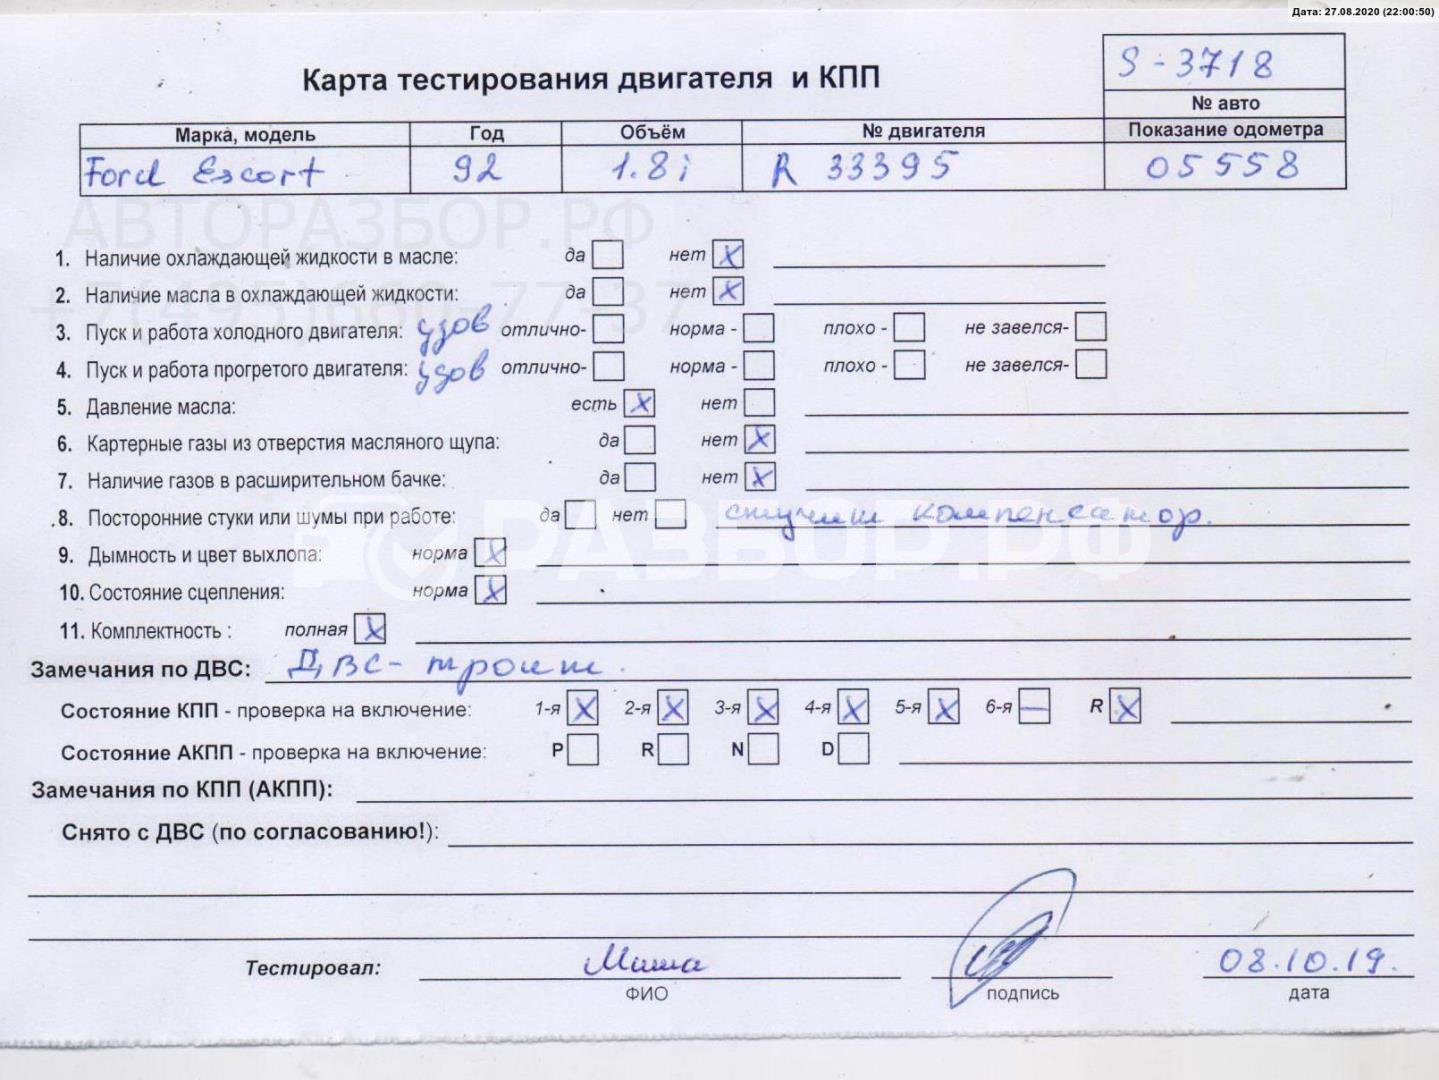 Дата: 27.08.2020 (22:00:50)
S-3718
Карта тестирования двигателя и КПП
№ авто
Марка, модель Год Объём № двигателя Показание одометра
Ford Escort 92 1.8i R 33395 05558
АВТОРАЗБОР.РФ
1. Наличие охлаждающей жидкости в масле: да нет X
2. Наличие масла в охлаждающей жидкости: да нет X
+7(495)660-77-37
3. Пуск и работа холодного двигателя: удов отлично- норма - плохо - не завелся-
4. Пуск и работа прогретого двигателя: удов отлично- норма - плохо - не завелся-
5. Давление масла: есть X нет
6. Картерные газы из отверстия масляного щупа: да нет X
7. Наличие газов в расширительном бачке: да нет X
8. Посторонние стуки или шумы при работе: да нет стучит компенсатор.
РАЗБОР.РФ
9. Дымность и цвет выхлопа: норма X
10. Состояние сцепления: норма X
11. Комплектность : полная X
Замечания по ДВС: ДВС- троит.
Состояние КПП - проверка на включение: 1-я X 2-я X 3-я X 4-я X 5-я X 6-я — R X
Состояние АКПП - проверка на включение: P R N D
Замечания по КПП (АКПП):
Снято с ДВС (по согласованию!):
Тестировал: Миша 08.10.19.
ФИО подпись дата